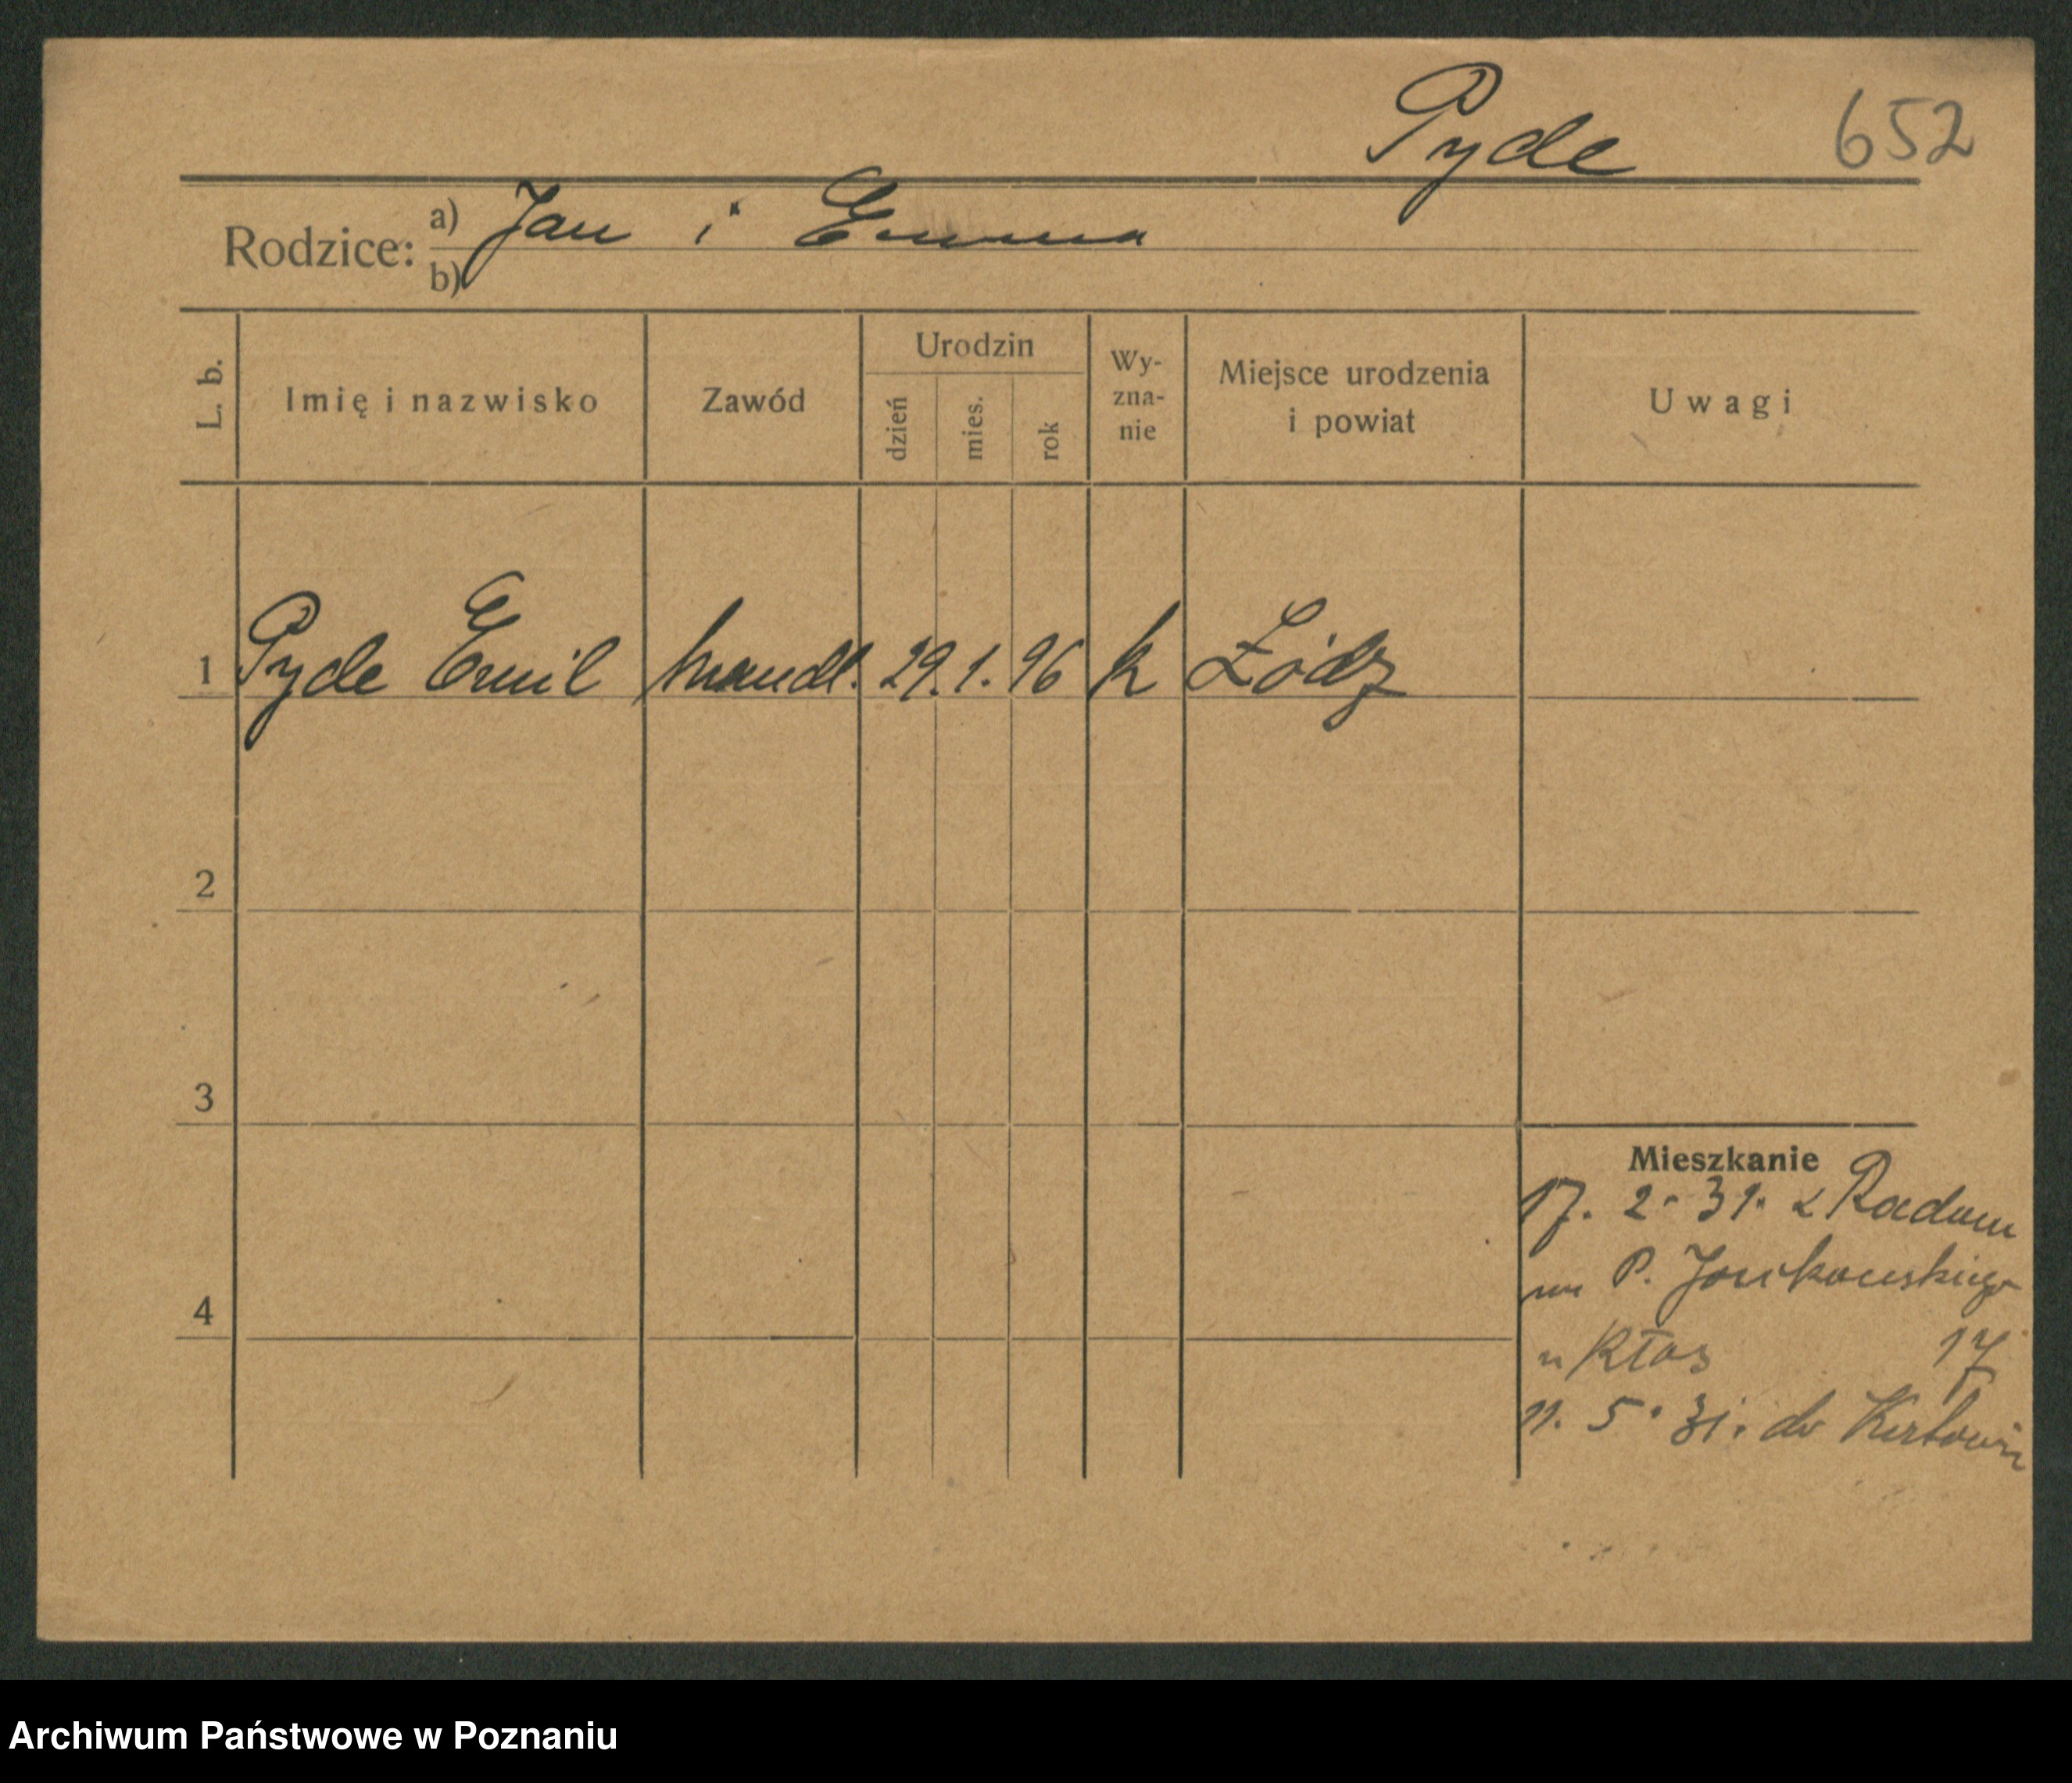 Pyde 652
Rodzice: a) Jan i Emma
b)
L. b. Imię i nazwisko Zawód Urodzin dzień mies. rok Wy-zna-nie Miejsce urodzenia i powiat Uwagi
1 Pyde Emil handl. 29. 1. 96 k Łódz
2
3
Mieszkanie
17. 2. 31. z Radom
P.
4
17
11. 5. 31. do
Archiwum Państwowe w Poznaniu